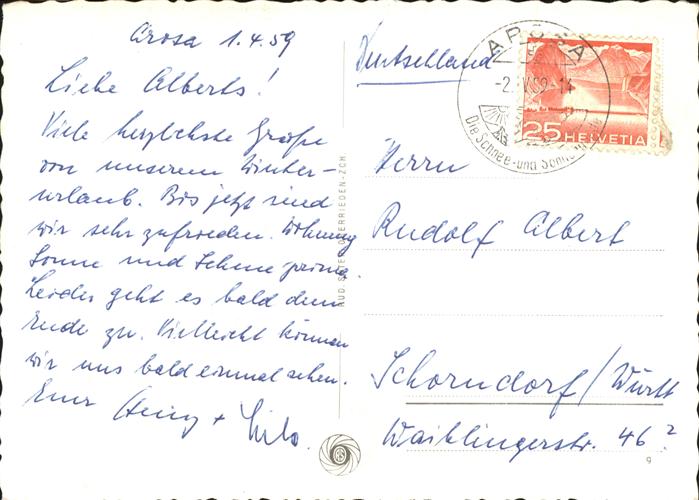 Arosa 1.4.59
Liebe Alberts!
Viele herzlichste Grüße
von unserem Winter-
urlaub. Bis jetzt sind
wir sehr zufrieden. Wohnung
Sonne und Schnee prima.
Leider geht es bald dem
Ende zu. Vielleicht können
wir uns bald einmal sehen.
Eure Heinz +
RUD. SUTER, OBERRIEDEN-ZCH
Deutschland
AROSA
-2. IV. 59 - 14
Die Schnee- und Sonn
25 HELVETIA
Herrn
Rudolf Albert
Schorndorf/Württ
Waiblingerstr. 46?
9